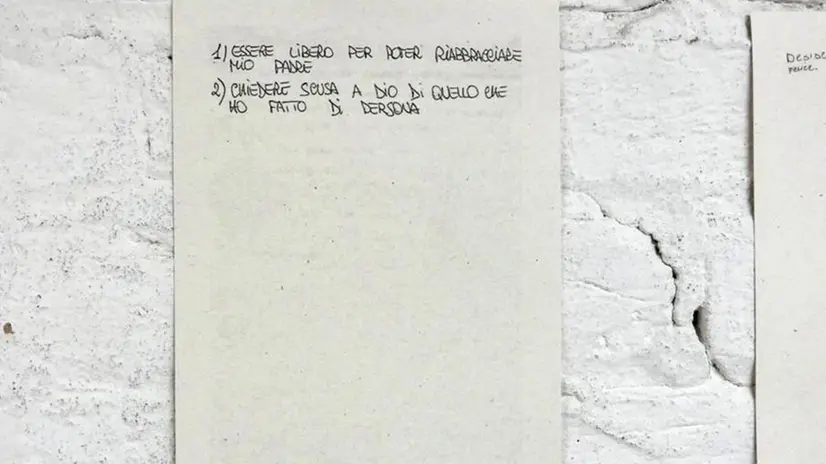 1) ESSERE LIBERO PER POTER RIABBRACCIARE
MIO PADRE
2) CHIEDERE SCUSA A DIO DI QUELLO CHE
HO FATTO DI PERSONA